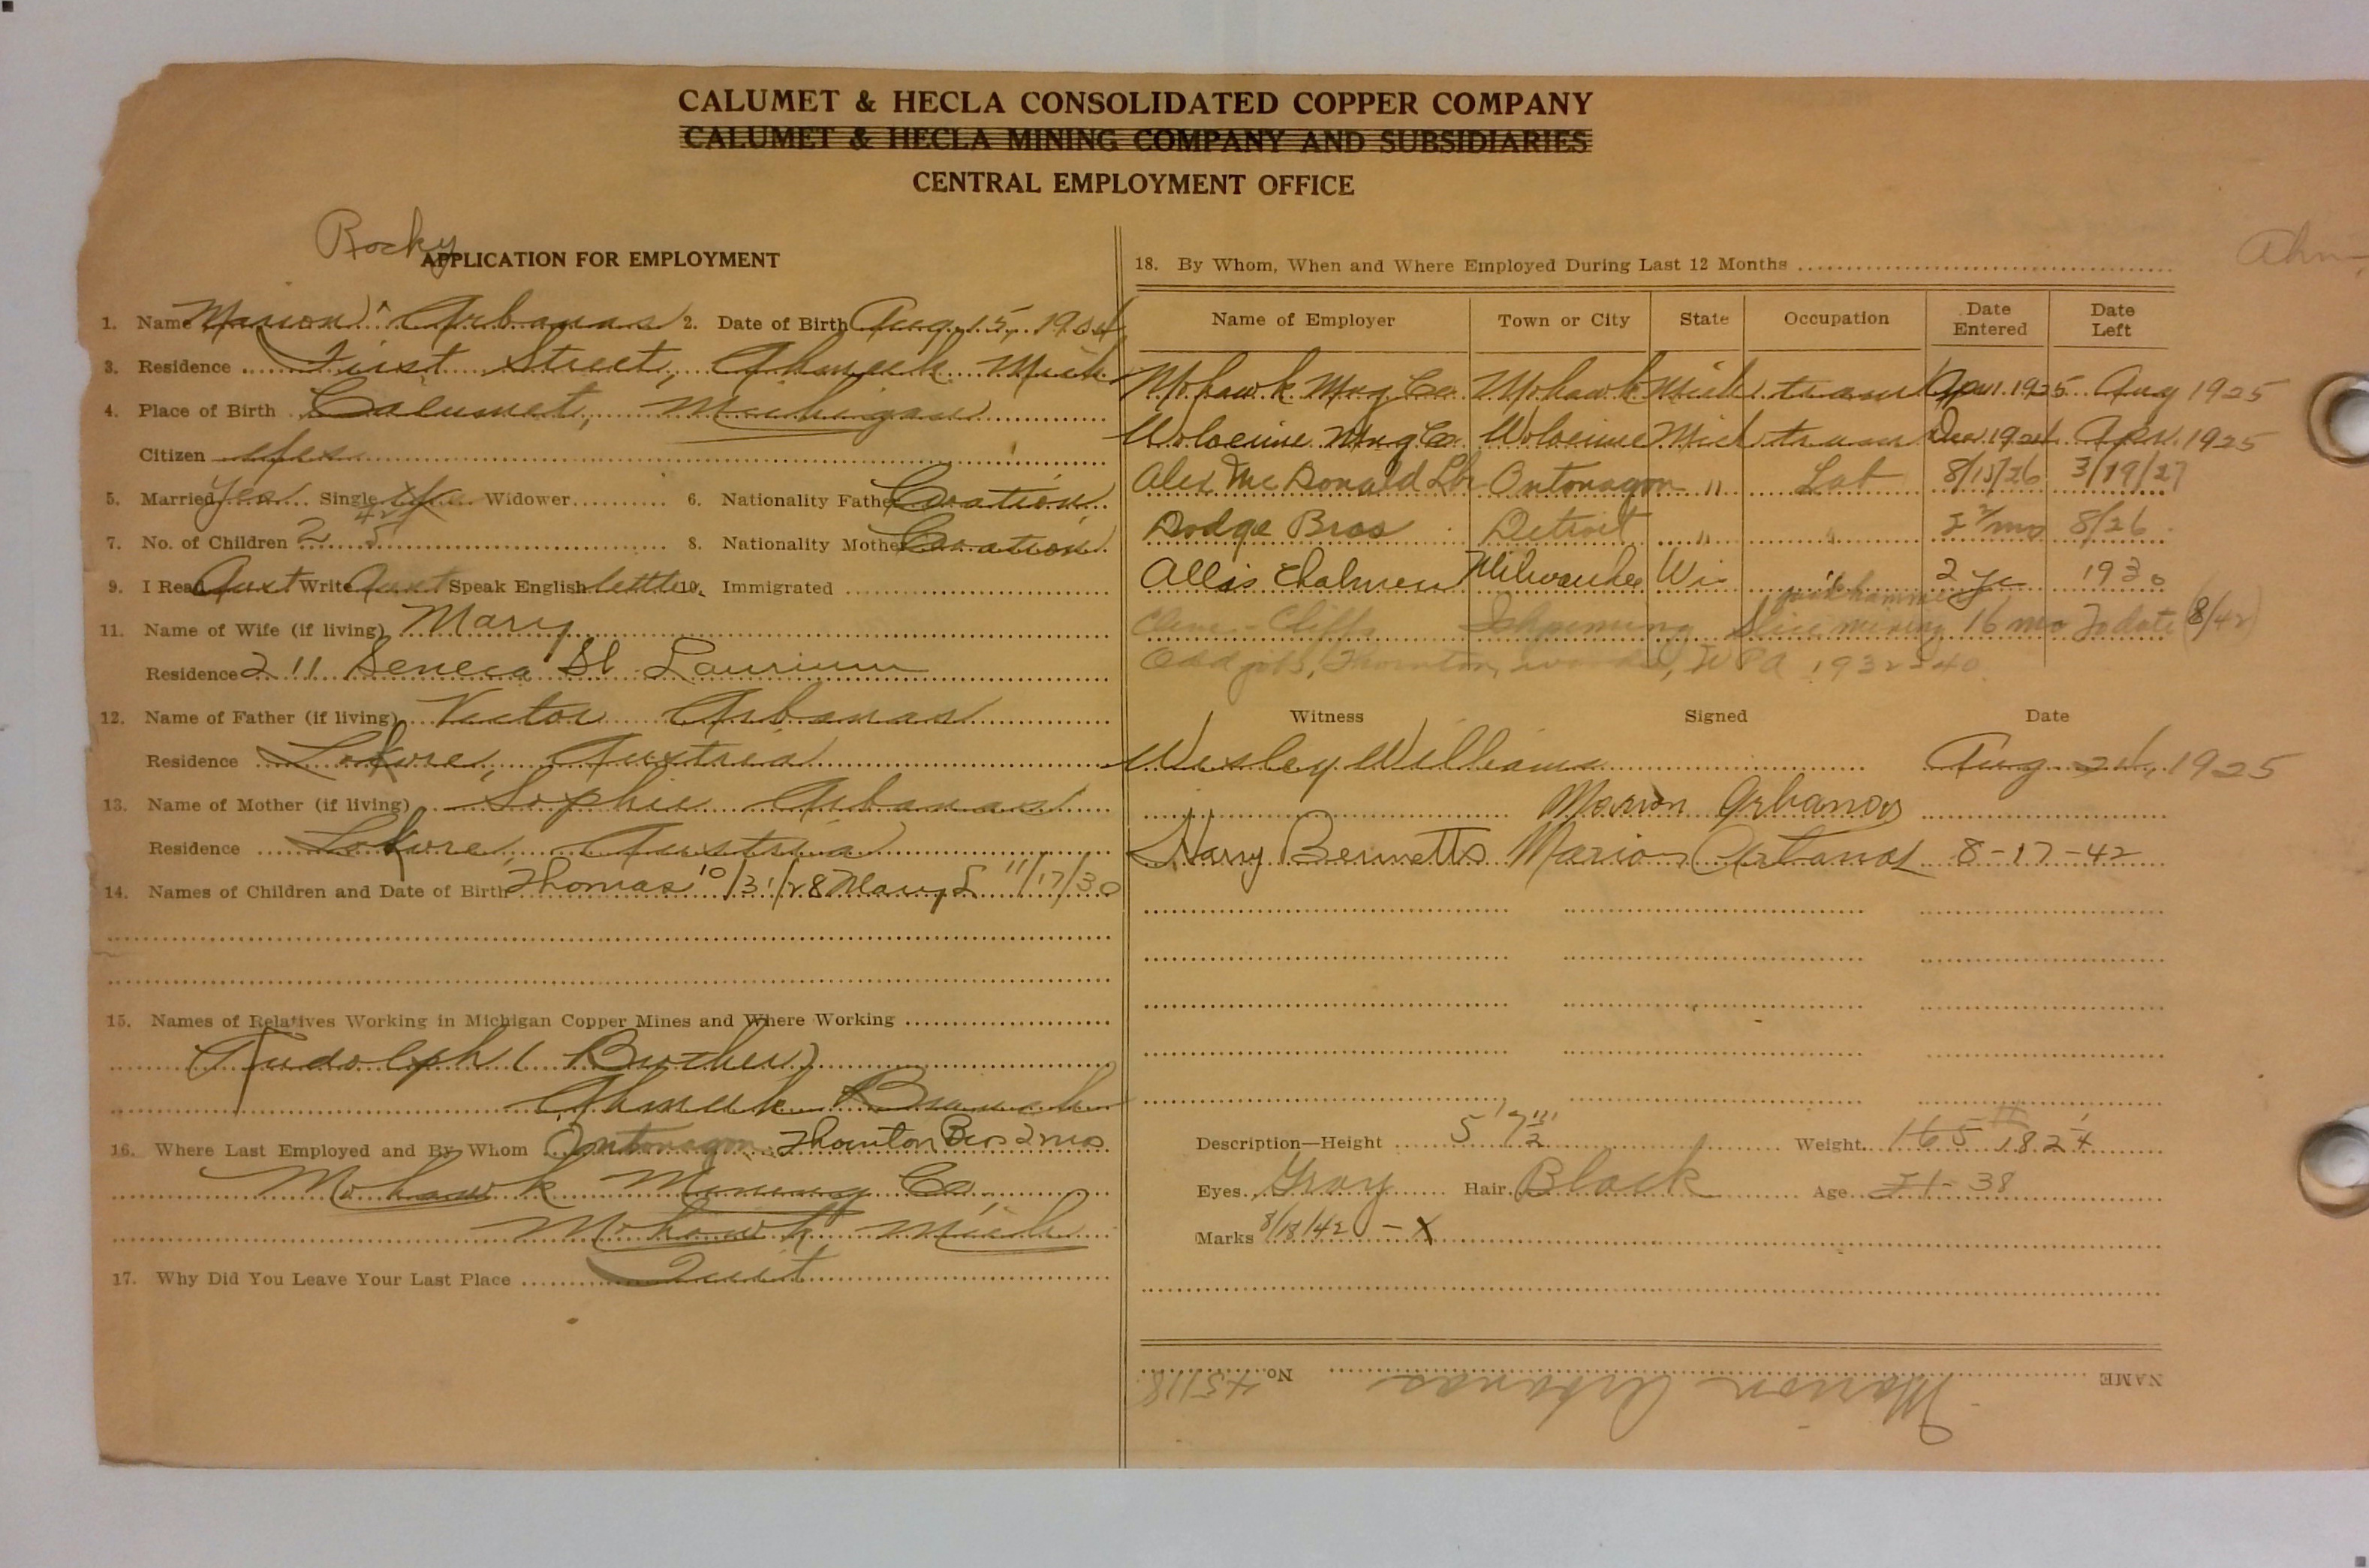 CALUMET & HECLA CONSOLIDATED COPPER COMPANY
CALUMET & HECLA MINING COMPANY AND SUBSIDIARIES
CENTRAL EMPLOYMENT OFFICE
Rocky
APPLICATION FOR EMPLOYMENT
1. Name Marion Arbanas 2. Date of Birth Aug. 15, 1904
3. Residence First Street, Ahmeek Mich
4. Place of Birth Calumet, Michigan
Citizen yes
5. Married yes Single Widower 6. Nationality Father Croation
7. No. of Children 2 8. Nationality Mother Croation
9. I Read Aust Write Aust Speak English little 10. Immigrated
11. Name of Wife (if living) Mary
Residence 211 Seneca St Laurium
12. Name of Father (if living) Victor Arbanas
Residence Lokve, Austria
13. Name of Mother (if living) Sophie Arbanas
Residence Lokve, Austria
14. Names of Children and Date of Birth Thomas 10/31/28 Mary L 11/17/30
15. Names of Relatives Working in Michigan Copper Mines and Where Working
Rudolph (Brother)
Ahmeek Branch
16. Where Last Employed and By Whom Ontonagon Thornton Bros 2 mos
Mohawk Mining Co.
Mohawk Mich
17. Why Did You Leave Your Last Place Quit
18. By Whom, When and Where Employed During Last 12 Months
Ahm
Name of Employer Town or City State Occupation Date Entered Date Left
Mohawk Mng. Co. Mohawk Mich tram Apr. 1925 Aug 1925
Wolverine Mng Co. Wolverine Mich tram Dec 1924 Apr. 1925
Alex McDonald Lbr Ontonagon " Lab 8/15/26 3/19/27
Dodge Bros Detroit " " mo 8/26
Allis Chalmers Milwaukee Wis " 2 yr 1930
jackhammer
Cleve-Cliffs Ishpeming Slice mining 16 mo To date (8/42)
Odd jobs, Thornton, woods, WPA 1932-40
Witness Signed Date
Wesley Williams Aug. 24, 1925
Marion Arbanas
Harry Bennetts Marion Arbanas 8-17-42
Description—Height 5' 7½" Weight 165 182
Eyes Gray Hair Black Age 21 38
Marks 8/18/42 - X
NAME Marion Arbanas No. 45118